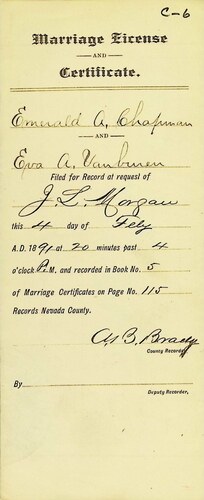 C-6
Marriage License
AND
Certificate.
Emerald A. Chapman
AND
Eva A. Vanburen
Filed for Record at request of
J. L. Morgan
this 4 day of Feby
A.D. 1891 at 20 minutes past 4
o'clock P.M, and recorded in Book No. 5
of Marriage Certificates on Page No. 115
Records Nevada County.
Brady
County Recorder
By
Deputy Recorder,